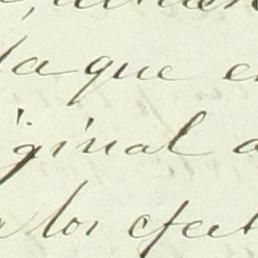 la que e
iginal a
a los efect